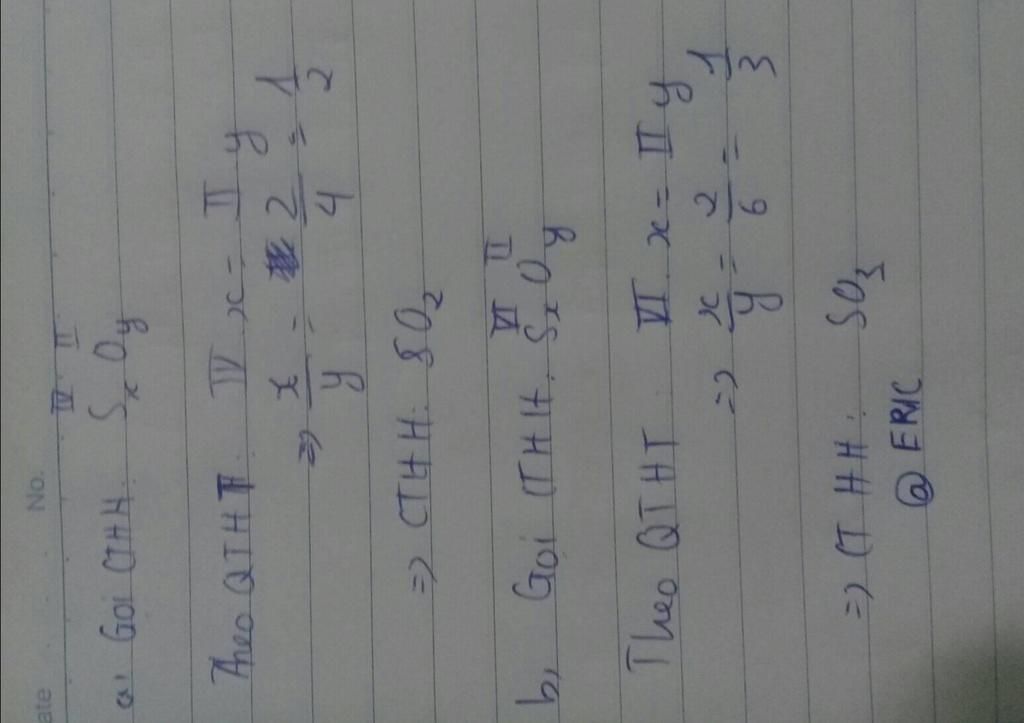 ate No.
IV II
a, Goi CTHH: SxOy
Theo QTHT: IV x = II y
=> x/y = 2/4 = 1/2
=> CTHH: SO2
VI II
b, Goi CTHH: SxOy
Theo QTHT VI x = II y
=> x/y = 2/6 = 1/3
=> CTHH: SO3
@ ERIC